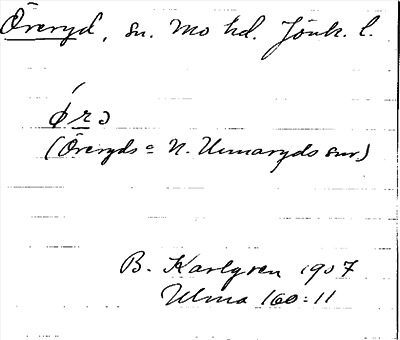 Öreryd, sn. Mo hd. Jönk. l.
ǿrɔ
(Öreryds = N. Unnaryds snr)
B. Karlgren 1907
Ulma 160:11